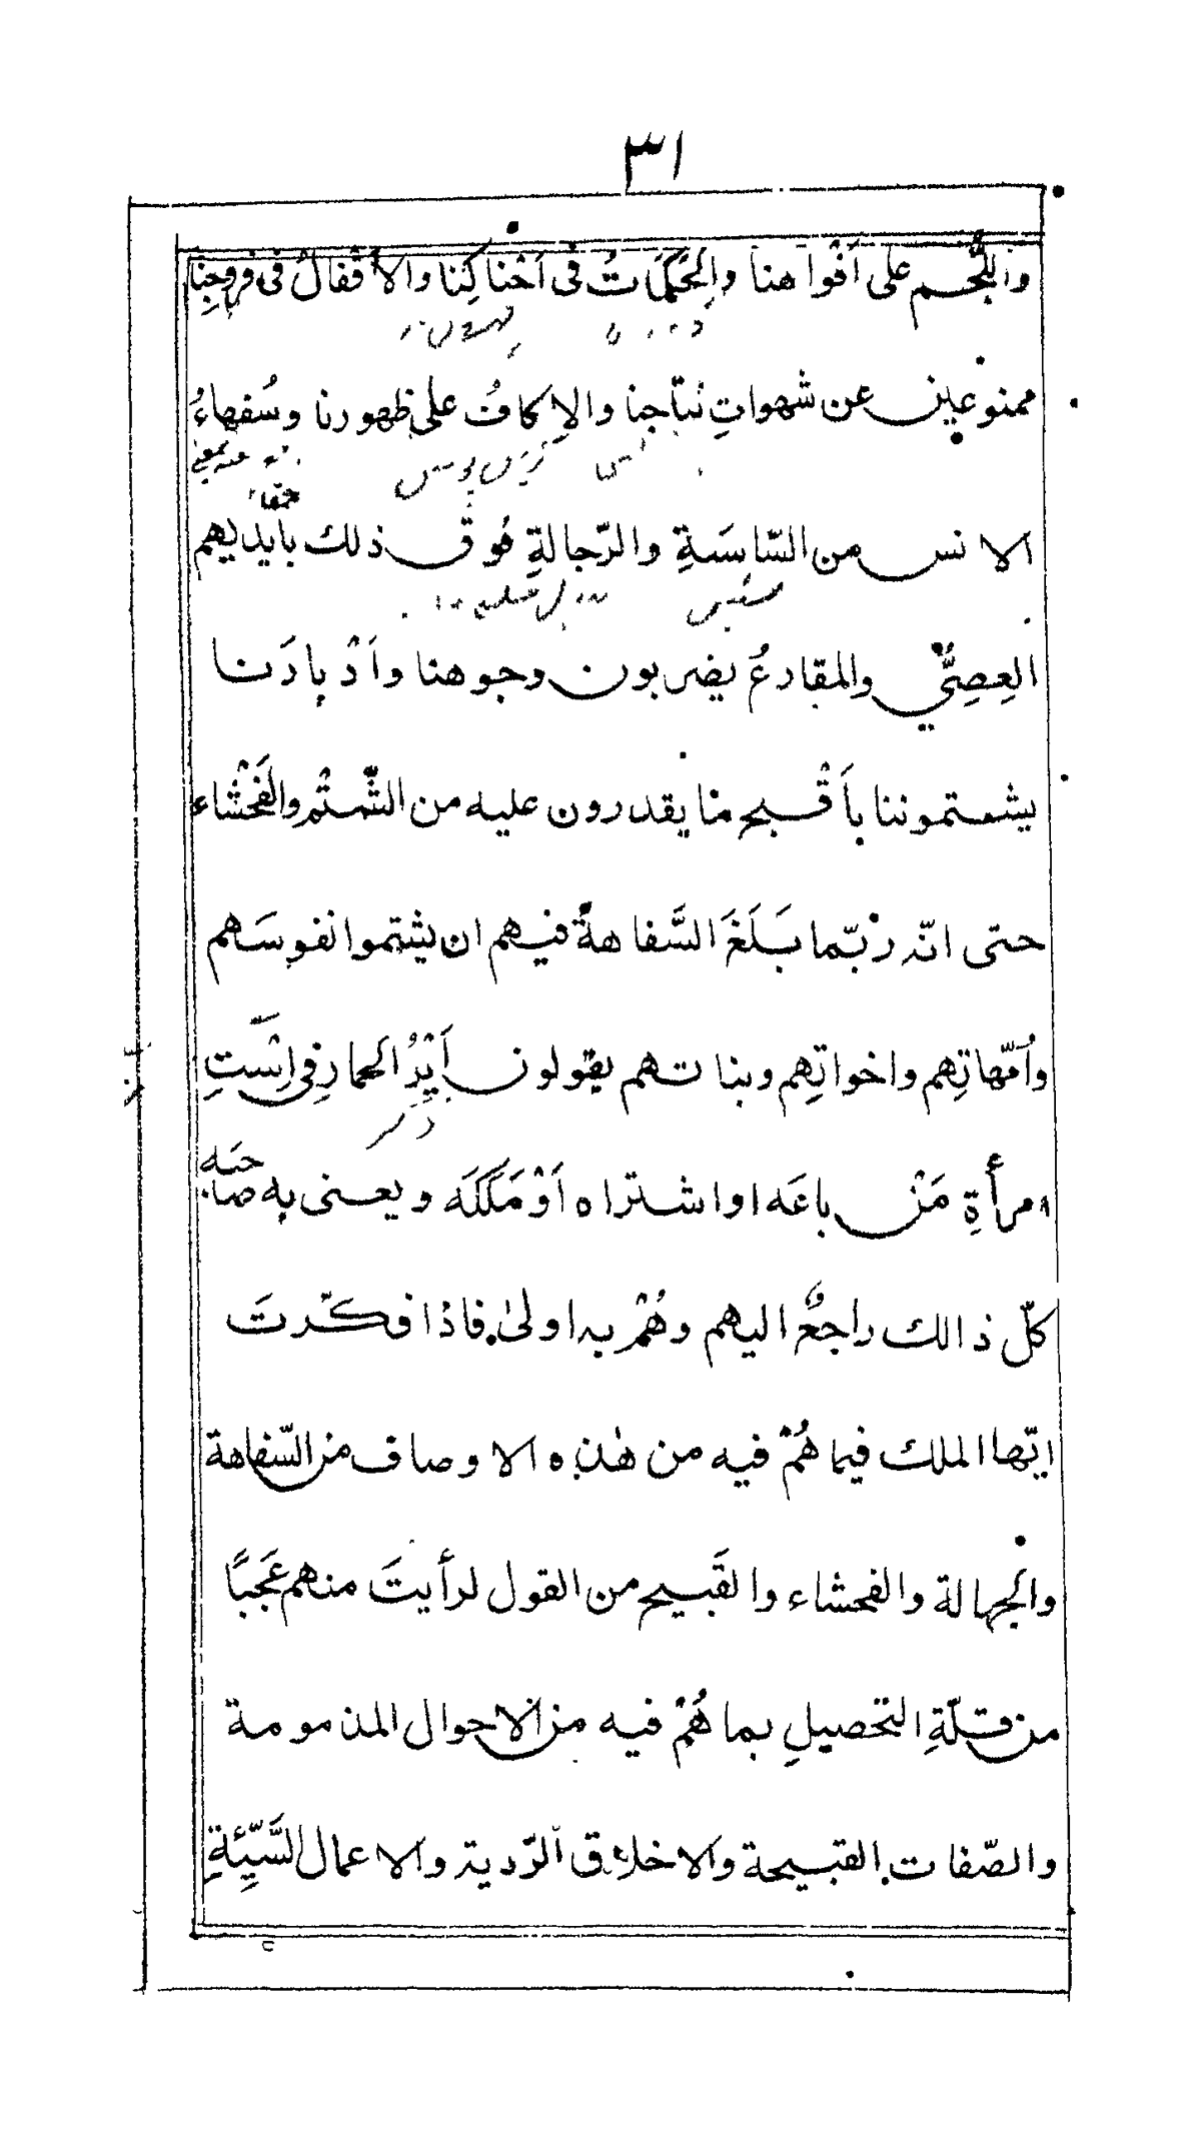 ٣١
واللُّجُم على اَفْواهنا والحَكَمَاتُ فى اَحْناكِنا والاَقْفالُ فى فروجِنا
ممنوعين عن شهواتِ نتاجنا والاِكافُ على ظهورنا وسُفهاءُ
حمقاء
الانس من السّاسَةِ والرّجالةِ فُوق ذلك بأيديهم
العِصِىُّ والمقارعُ يضربون وجوهنا واَدْبارَنا
يشتموننا بأَقْبح ما يقدرون عليه من الشّتْم والفَحْشاء
حتى انّه رُبّما بَلَغَ السَّفاهةُ فيهم ان يشتموا نفوسَهم
واُمّهاتِهم واخواتِهم وبناتهم يقولون اَيْرُ الحمار فى اِسْتِ
امرأةِ مَنْ باعَه او اشتراه اَوْ مَلَكَه ويعنى به صاحبَه
كلّ ذالك راجعٌ اليهم وهُمْ به اولىٰ فاذا فكّرتَ
ايّها الملك فيما هُمْ فيه من هٰذه الاوصاف من السّفاهة
والجهالة والفحشاء والقَبيح من القول لرأيتَ منهم عَجَبًا
من قلّةِ التحصيلِ بما هُمْ فيه من الاحوال المذمومة
والصّفات القبيحة والاخلاق الرّدية والاعمال السَّيِّئَةِ